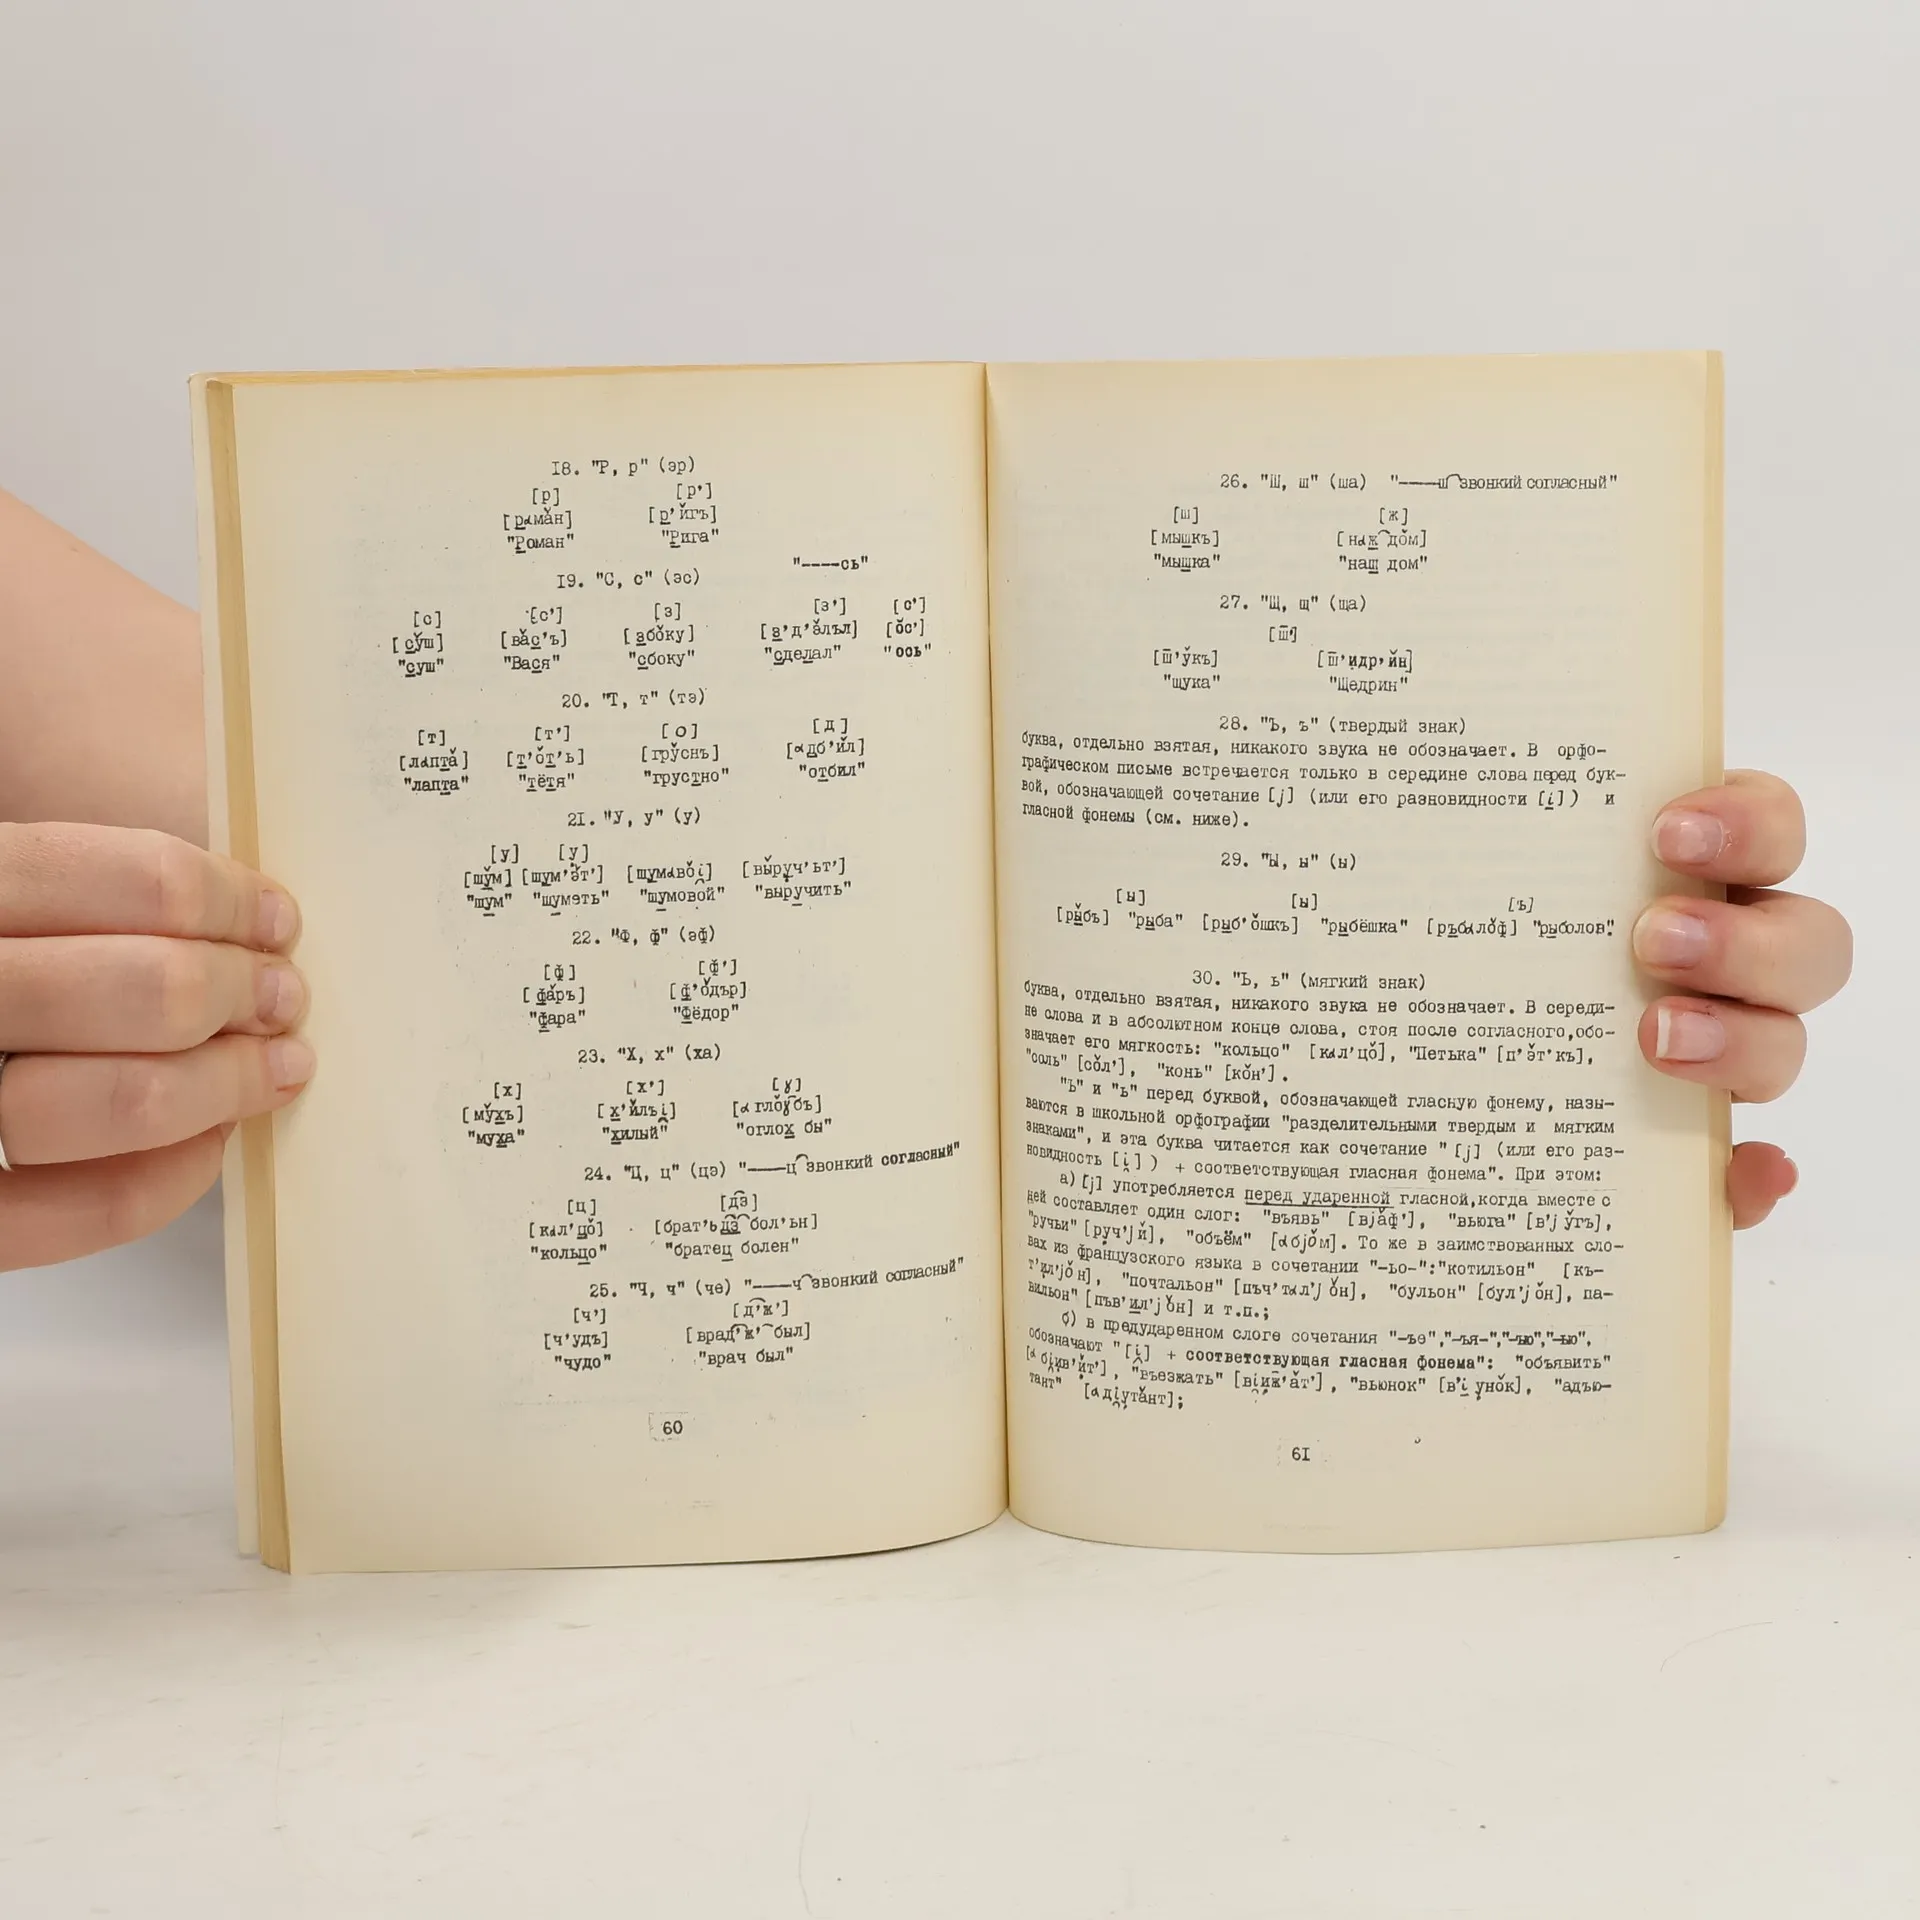 18. "Р, р" (эр)
[р] [р’]
[рαма̌н] [р’и̌гъ]
"Роман" "Рига"
"----сь"
19. "С, с" (эс)
[с] [с’] [з] [з’] [с’]
[су̌ш] [ва̌с’ъ] [збо̌ку] [з’д’а̌лъл] [о̌с’]
"суш" "Вася" "сбоку" "сделал" "ось"
20. "Т, т" (тэ)
[т] [т’] [О] [д]
[лαпта̌] [т’о̌т’ь] [гру̌снъ] [αдб’и̌л]
"лапта" "тётя" "грустно" "отбил"
21. "У, у" (у)
[у] [у̣]
[шу̌м] [шум’э̌т’] [шумαво̌i̯] [вы̌руч’ьт’]
"шум" "шуметь" "шумовой" "выручить"
22. "Ф, ф" (эф)
[ф] [ф’]
[фа̌ръ] [ф’о̌дър]
"фара" "Фёдор"
23. "Х, х" (ха)
[х] [х’] [ɣ]
[му̌хъ] [х’и̌лъi̯] [αгло̌ɣ͡бъ]
"муха" "хилый" "оглох бы"
24. "Ц, ц" (цэ) "----ц͡звонкий согласный"
[ц] [д͡з]
[кαл’цо̌] [брат’ьд͡з͡бол’ьн]
"кольцо" "братец болен"
25. "Ч, ч" (че) "----ч͡звонкий согласный"
[ч’] [д͡’ж’]
[ч’удъ] [врад͡’ж’͡был]
"чудо" "врач был"
60
26. "Ш, ш" (ша) "----ш͡звонкий согласный"
[ш] [ж]
[мышкъ] [нαж͡до̌м]
"мышка" "наш дом"
27. "Щ, щ" (ща)
[ш̄’]
[ш̄’у̌къ] [ш̄’идр’и̌н]
"щука" "Щедрин"
28. "Ъ, ъ" (твердый знак)
буква, отдельно взятая, никакого звука не обозначает. В орфо-
графическом письме встречается только в середине слова перед бук-
вой, обозначающей сочетание [j] (или его разновидности [i̯]) и
гласной фонемы (см. ниже).
29. "Ы, ы" (ы)
[ы] [ы] [ъ]
[ры̌бъ] "рыба" [рыб’о̌шкъ] "рыбёшка" [ръбαло̌ф] "рыболов".
30. "Ь, ь" (мягкий знак)
буква, отдельно взятая, никакого звука не обозначает. В середи-
не слова и в абсолютном конце слова, стоя после согласного,обо-
значает его мягкость: "кольцо" [кαл’цо̌], "Петька" [п’э̌т’къ],
"соль" [со̌л’], "конь" [ко̌н’].
"Ъ" и "ь" перед буквой, обозначающей гласную фонему, назы-
ваются в школьной орфографии "разделительными твердым и мягким
знаками", и эта буква читается как сочетание "[j] (или его раз-
новидность [i̯]) + соответствующая гласная фонема". При этом:
а) [j] употребляется перед ударенной гласной,когда вместе с
ней составляет один слог: "въявь" [вjа̌ф’], "вьюга" [в’jу̌гъ],
"ручьи" [руч’jи̌], "объём" [αбjо̌м]. То же в заимствованных сло-
вах из французского языка в сочетании "-ьо-":"котильон" [къ-
т’ил’jо̌н], "почтальон" [пъч’тαл’jо̌н], "бульон" [бул’jо̌н], па-
вильон" [пъв’ил’jо̌н] и т.п.;
б) в предударенном слоге сочетания "-ъе","-ъя-","-ью","-ъю",
обозначают "[i̯] + соответствующая гласная фонема": "объявить"
[αбi̯ив’и̌т’], "въезжать" [вi̯иж̄’а̌т’], "вьюнок" [в’i̯уно̌к], "адъю-
тант" [αдi̯ута̌нт];
61